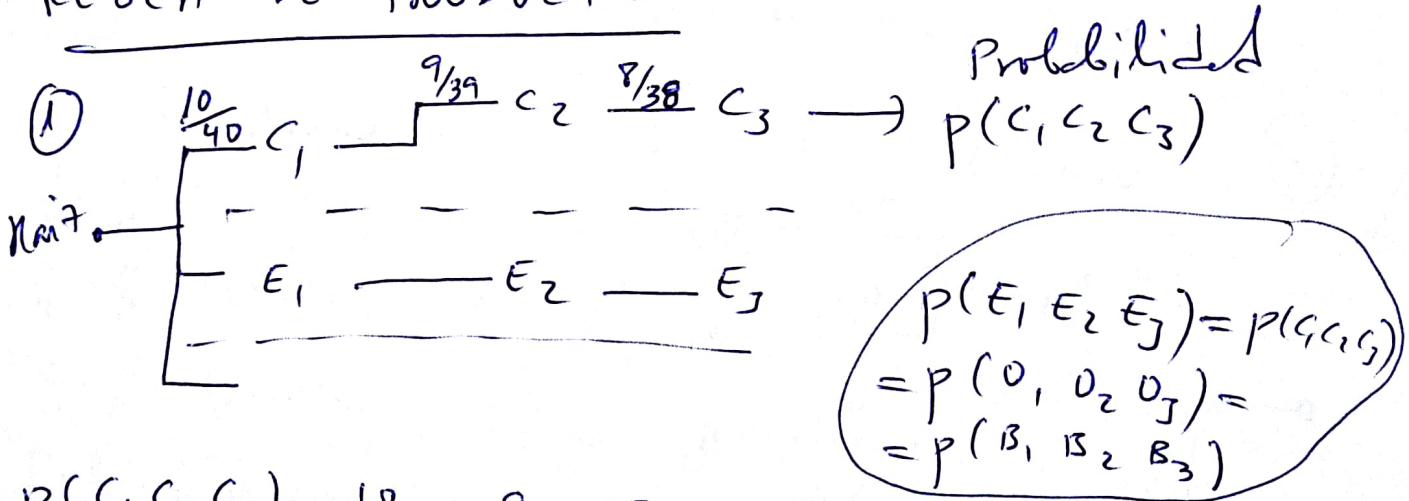 Probabilidad
① 10/40 C₁ 9/39 C₂ 8/38 C₃ → p(C₁ C₂ C₃)
E₁ E₂ E₃
p(E₁ E₂ E₃) = p(C₁C₂C₃)
= p(O₁ O₂ O₃) =
= p(B₁ B₂ B₃)